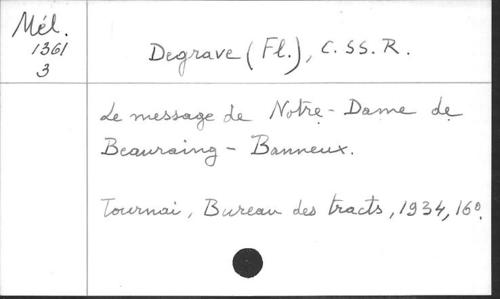 Mél.
1361
3
Degrave (Fl.), C.SS.R.
Le message de Notre-Dame de
Beauraing - Banneux.
Tournai, Bureau des tracts, 1934, 16°.